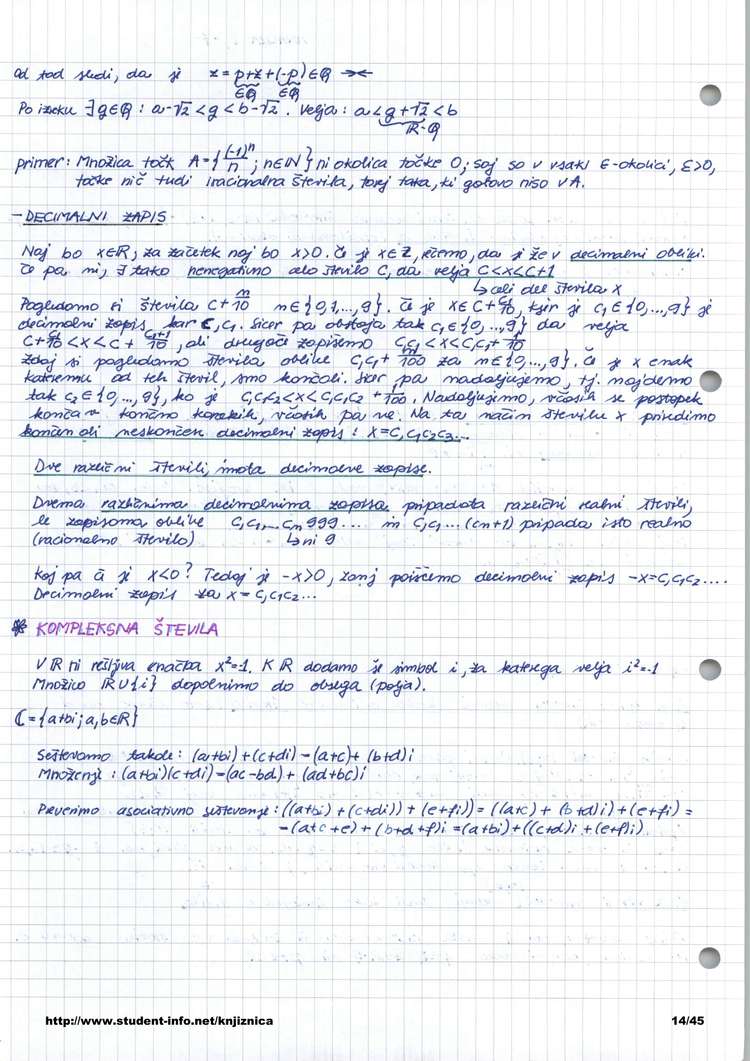 Od tod sledi, da je z = p+z+(-p) ∈ Q →←
∈Q ∈Q
Po izreku ∃ q∈Q : a-√2 < q < b-√2. Velja: a < q+√2 < b
R-Q
primer: Množica točk A = {(-1)^n/n ; n∈N} ni okolica točke 0, saj so v vsaki ε-okolici, ε>0,
točke nič tudi iracionalna števila, torej taka, ki gotovo niso v A.
- DECIMALNI ZAPIS
Naj bo x∈R, za začetek naj bo x>0. Če je x∈Z, rečemo, da je že v decimalni obliki.
Če pa ni, ∃ tako nenegativno celo število C, da velja C<x<C+1
↳ celi del števila x
Pogledamo si števila C + m/10 m∈{0,1,...,9}. Če je x∈C+c₁/10, kjer je c₁∈{0,...,9} je
decimalni zapis kar C,c₁. Sicer pa obstaja tak c₁∈{0,...,9} da velja
C+c₁/10 < x < C + c₁+1/10, ali drugače zapišemo C,c₁ < x < C,c₁ + 1/10
zdaj si pogledamo števila oblike C,c₁ + m/100 za m∈{0,...,9}. Če je x enak
kateremu od teh števil, smo končali. Sicer pa nadaljujemo, tj. najdemo
tak c₂∈{0,...,9}, ko je C,c₁c₂<x<C,c₁c₂ + 1/100. Nadaljujemo, včasih se postopek
konča v končno korakih, včasih pa ne. Na ta način številu x priredimo
končen ali neskončen decimalni zapis: x=C,c₁c₂c₃...
Dve različni števili, imata decimalne zapise.
Dvema različnima decimalnima zapisa pripadata različni realni števili,
le zapisoma oblike C,c₁...cₙ999... in C,c₁...(cₙ+1) pripada isto realno
(racionalno število) ↳ ni 9
Kaj pa če je x<0? Tedaj je -x>0, zanj poiščemo decimalni zapis -x=C,c₁c₂....
Decimalni zapis za x = C,c₁c₂...
* KOMPLEKSNA ŠTEVILA
V R ni rešljiva enačba x²=-1. K R dodamo še simbol i, za katerega velja i²=-1
Množico R∪{i} dopolnimo do obsega (polja).
C={a+bi; a,b∈R}
Seštevamo takole: (a+bi)+(c+di)=(a+c)+(b+d)i
Množenje: (a+bi)(c+di)=(ac-bd)+(ad+bc)i
Preverimo asociativno seštevanje: ((a+bi)+(c+di))+(e+fi))=((a+c)+(b+d)i)+(e+fi)=
=(a+c+e)+(b+d+f)i=(a+bi)+((c+d)i+(e+f)i)
http://www.student-info.net/knjiznica 14/45